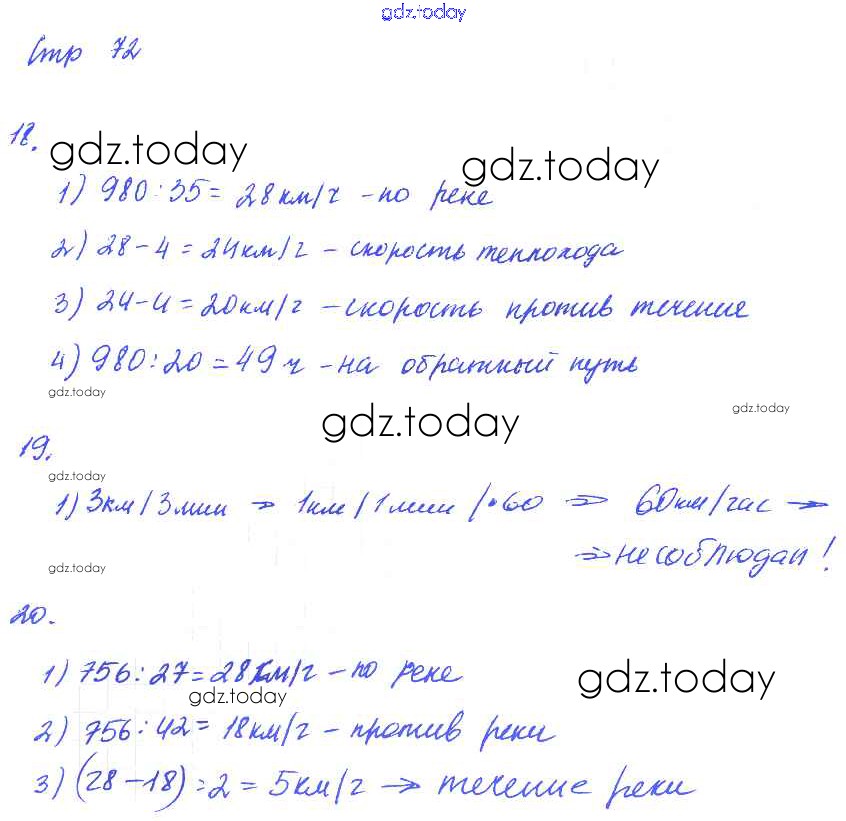 gdz.today
Стр 72
18.
gdz.today
gdz.today
1) 980 : 35 = 28 км/ч - по реке
2) 28 - 4 = 24 км/ч - скорость теплохода
3) 24 - 4 = 20 км/ч - скорость против течение
4) 980 : 20 = 49 ч - на обратный путь
gdz.today
gdz.today
gdz.today
19.
gdz.today
1) 3 км / 3 мин ⇒ 1 км / 1 мин / • 60 ⇒ 60 км/час →
⇒ не соблюдал!
gdz.today
20.
1) 756 : 27 = 28 км/ч - по реке
gdz.today
gdz.today
2) 756 : 42 = 18 км/ч - против реки
3) (28 - 18) : 2 = 5 км/ч → течение реки